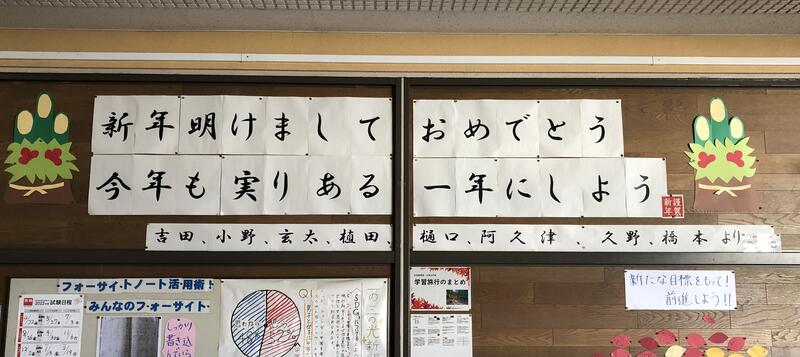 新年明けまして おめでとう
今年も実りある 一年にしよう
謹賀
新年
吉田、小野、玄太、植田、樋口、阿久津、久野、橋本より
フォーサイトノート活用術!
みんなのフォーサイト
試験日程
しっかり
書き込
Q1
SDGs
学習旅行のまとめ
新たな目標をもって!
前進しよう!!